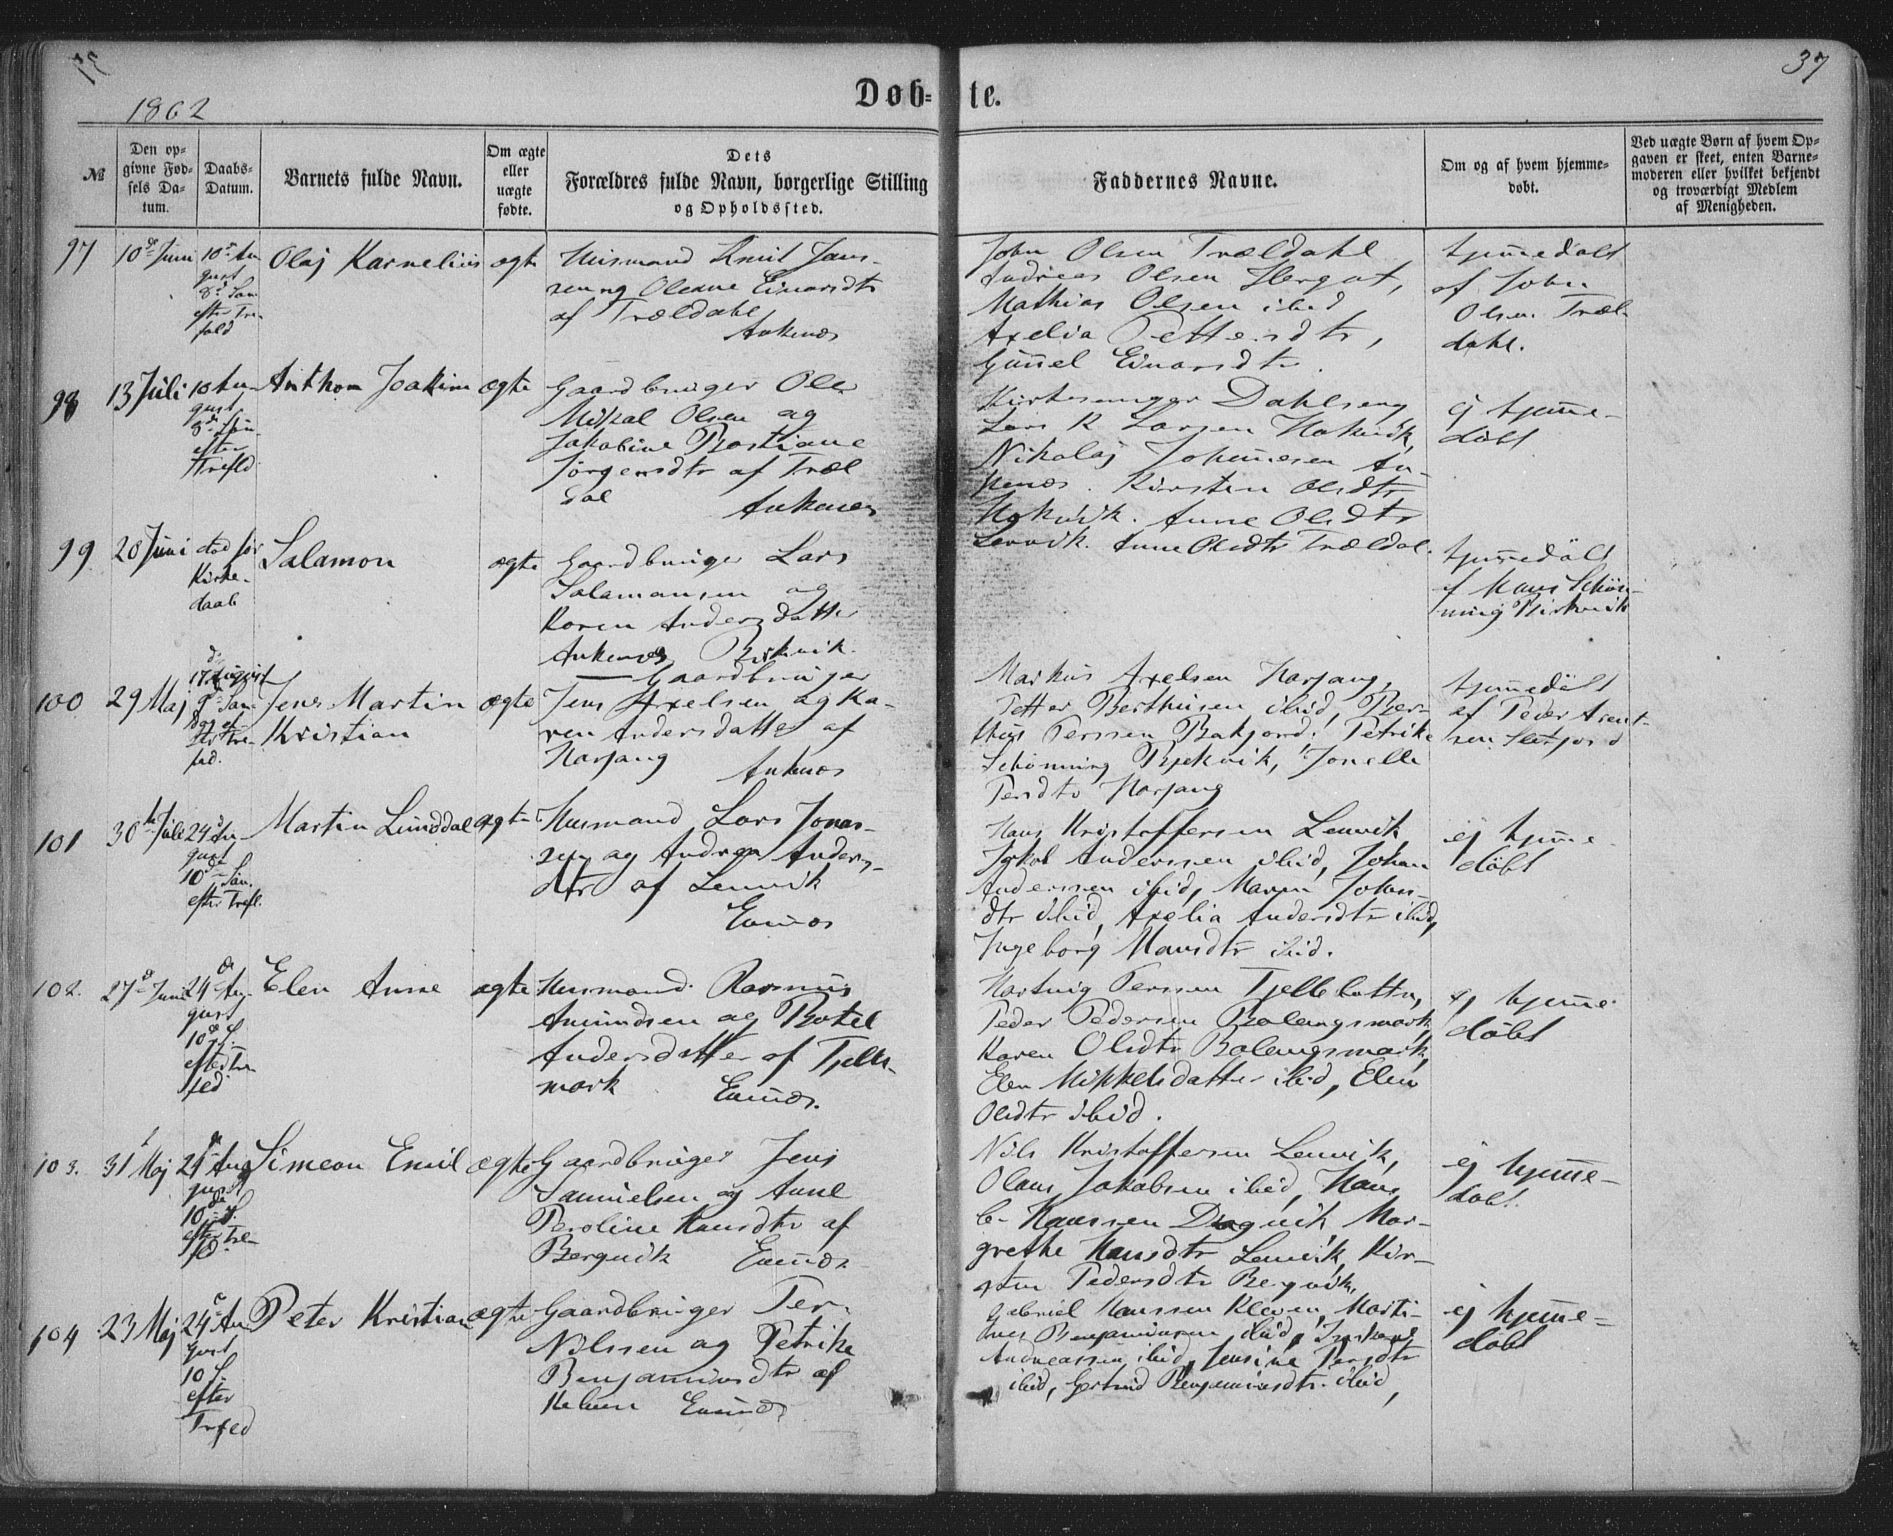 37
1862
Døb-
te.
37
№
Den op-
givne Fød-
sels Da-
tum.
Daabs-
Datum.
Barnets fulde Navn.
Om ægte
eller
uægte
fødte.
Dets
Forældres fulde Navn, borgerlige Stilling
og Opholdssted.
Faddernes Navne.
Om og af hvem hjemme-
døbt.
Ved uægte Børn af hvem Op-
gaven er skeet, enten Barne-
moderen eller hvilket bekjendt
og troværdigt Medlem
af Menigheden.
97
10de Juni
10de Au-
gust
8d Søn
efter Tre-
fold
Olaj Karnelius
ægte
Husmand Knut Jans-
sen og Oleane Einarsdtr
af Trældahl
Ankenæs
John Olsen Trældahl
Andreas Olsen Hergot,
Mathias Olsen ibid
Axelia Pettersdtr,
Gunnel Einarsdtr.
hjemmedøbt
af John
Olsen Træl-
dahl.
98
13 Juli
10 Au-
gust
8d Søn-
efter
Trefld.
Anthon Joakim
ægte
Gaardbruger Ole
Mikal Olsen og
Jakobine Bastiane
Jørgensdtr af Træl
dal
Ankenæs
Kirkesanger Dahlseng
Lars R Larsen Hakvik,
Nikolaj Johannesen An-
kenæs. Kirsten Olsdtr
Hakvik. Anne Olsdtr
Lenvik. Anne Olsdtr Trældal.
ej hjemme-
døbt
99
20 Juni
død før
Kirke-
daab
Salamon
ægte
Gaardbruger Lars
Salamonsen og
Karen Andersdatter
Ankenæs Birkvik.
hjemmedøbt
af Hans Schøn-
ning Birkvik
100
29 Maj
17de August
9de Søn
Dag ef-
ter Tre-
fld.
Jens Martin
Kristian
ægte
Gaardbruger
Jens Axelsen og Ka-
ren Andersdatter af
Harjang
Ankenæs
Markus Axelsen Harjang,
Petter Berthusen ibid, Ber-
thus Perssen Bakjord, Petrike
Schønning Bjekvik, Jonelle
Persdtr Harjang
hjemmedøbt
af Peder Arent-
sen
101
30te Juli
24d Au-
gust
10de Søn.
efter Trefl.
Martin Linddal
ægte
Husmand Lars Jonas-
sen og Andrea Anders-
dtr af Lenvik
Evenæs
Hans Kristoffersen Lenvik,
Jakob Anderssen ibid, Johan
Anderssen ibid, Maren Johns-
dtr ibid, Axelia Andersdtr ibid,
Ingeborg Hansdtr ibid.
ej hjemme
døbt
102.
27de Juni
24de Au-
gust
10de S.
efter Tre-
fld.
Elen Anne
ægte
Husmand Rasmus
Amundsen og Botel
Andersdatter af Tjelle-
mark
Evenæs.
Hartvig Perssen Tjellebotten,
Peder Pedersen Balangsmark
Karen Olsdtr Balangsmark,
Elen Mikkelsdatter ibid, Elen
Olsdtr ibid.
ej hjemme
døbt
103.
31 Maj
24de Au-
gust
10de S.
efter Tre-
fld.
Simeon Emil
ægte
Gaardbruger Jens
Samuelsen og Anne
Peroline Hansdtr af
Bergvik
Evenæs
Nils Kristoffersen Lenvik,
Olaus Jakobsen ibid, Hans
C. Hanssen Dragvik, Mar-
grethe Hansdtr Lenvik, Kir-
sten Pedersdtr Bergvik,
ej hjemme-
døbt.
104
23 Maj
24de Au-
gust
10 S.
efter
Trfld
Peter Kristian
ægte
Gaardbruger Per
Nilssen og Petrike
Benjaminsdtr af
Kleven
Evenæs
Gabriel Hanssen Kleven, Marti-
nus Benjaminsen ibid,
Andreassen ibid, Jensine Persdtr
ibid, Gertrud Benjaminsdtr. ibid,
ej hjemme-
døbt